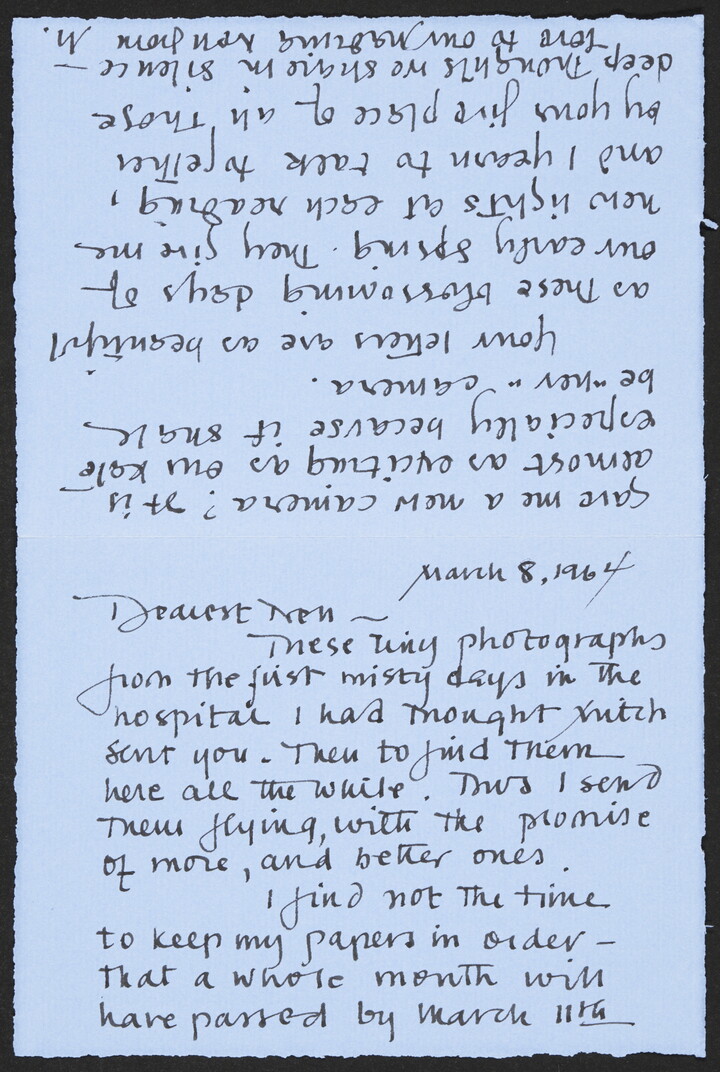 March 8, 1964
Dearest Nell ~
These tiny photographs
from the first misty days in the
hospital I had thought
sent you. Then to find them
here all the while. Thus I send
them flying, with the promise
of more, and better ones.
I find not the time
to keep my papers in order –
that a whole month will
have passed by March 11th
Gave me a new camera? It is
almost as exciting as our Kate
especially because it shall
be "her" camera.
Your letters are as beautiful
as these blossoming days of
our early spring. They give me
new lights at each reading,
and I yearn to talk together
by your fire place of all those
deep thoughts we share in silence –
love to our